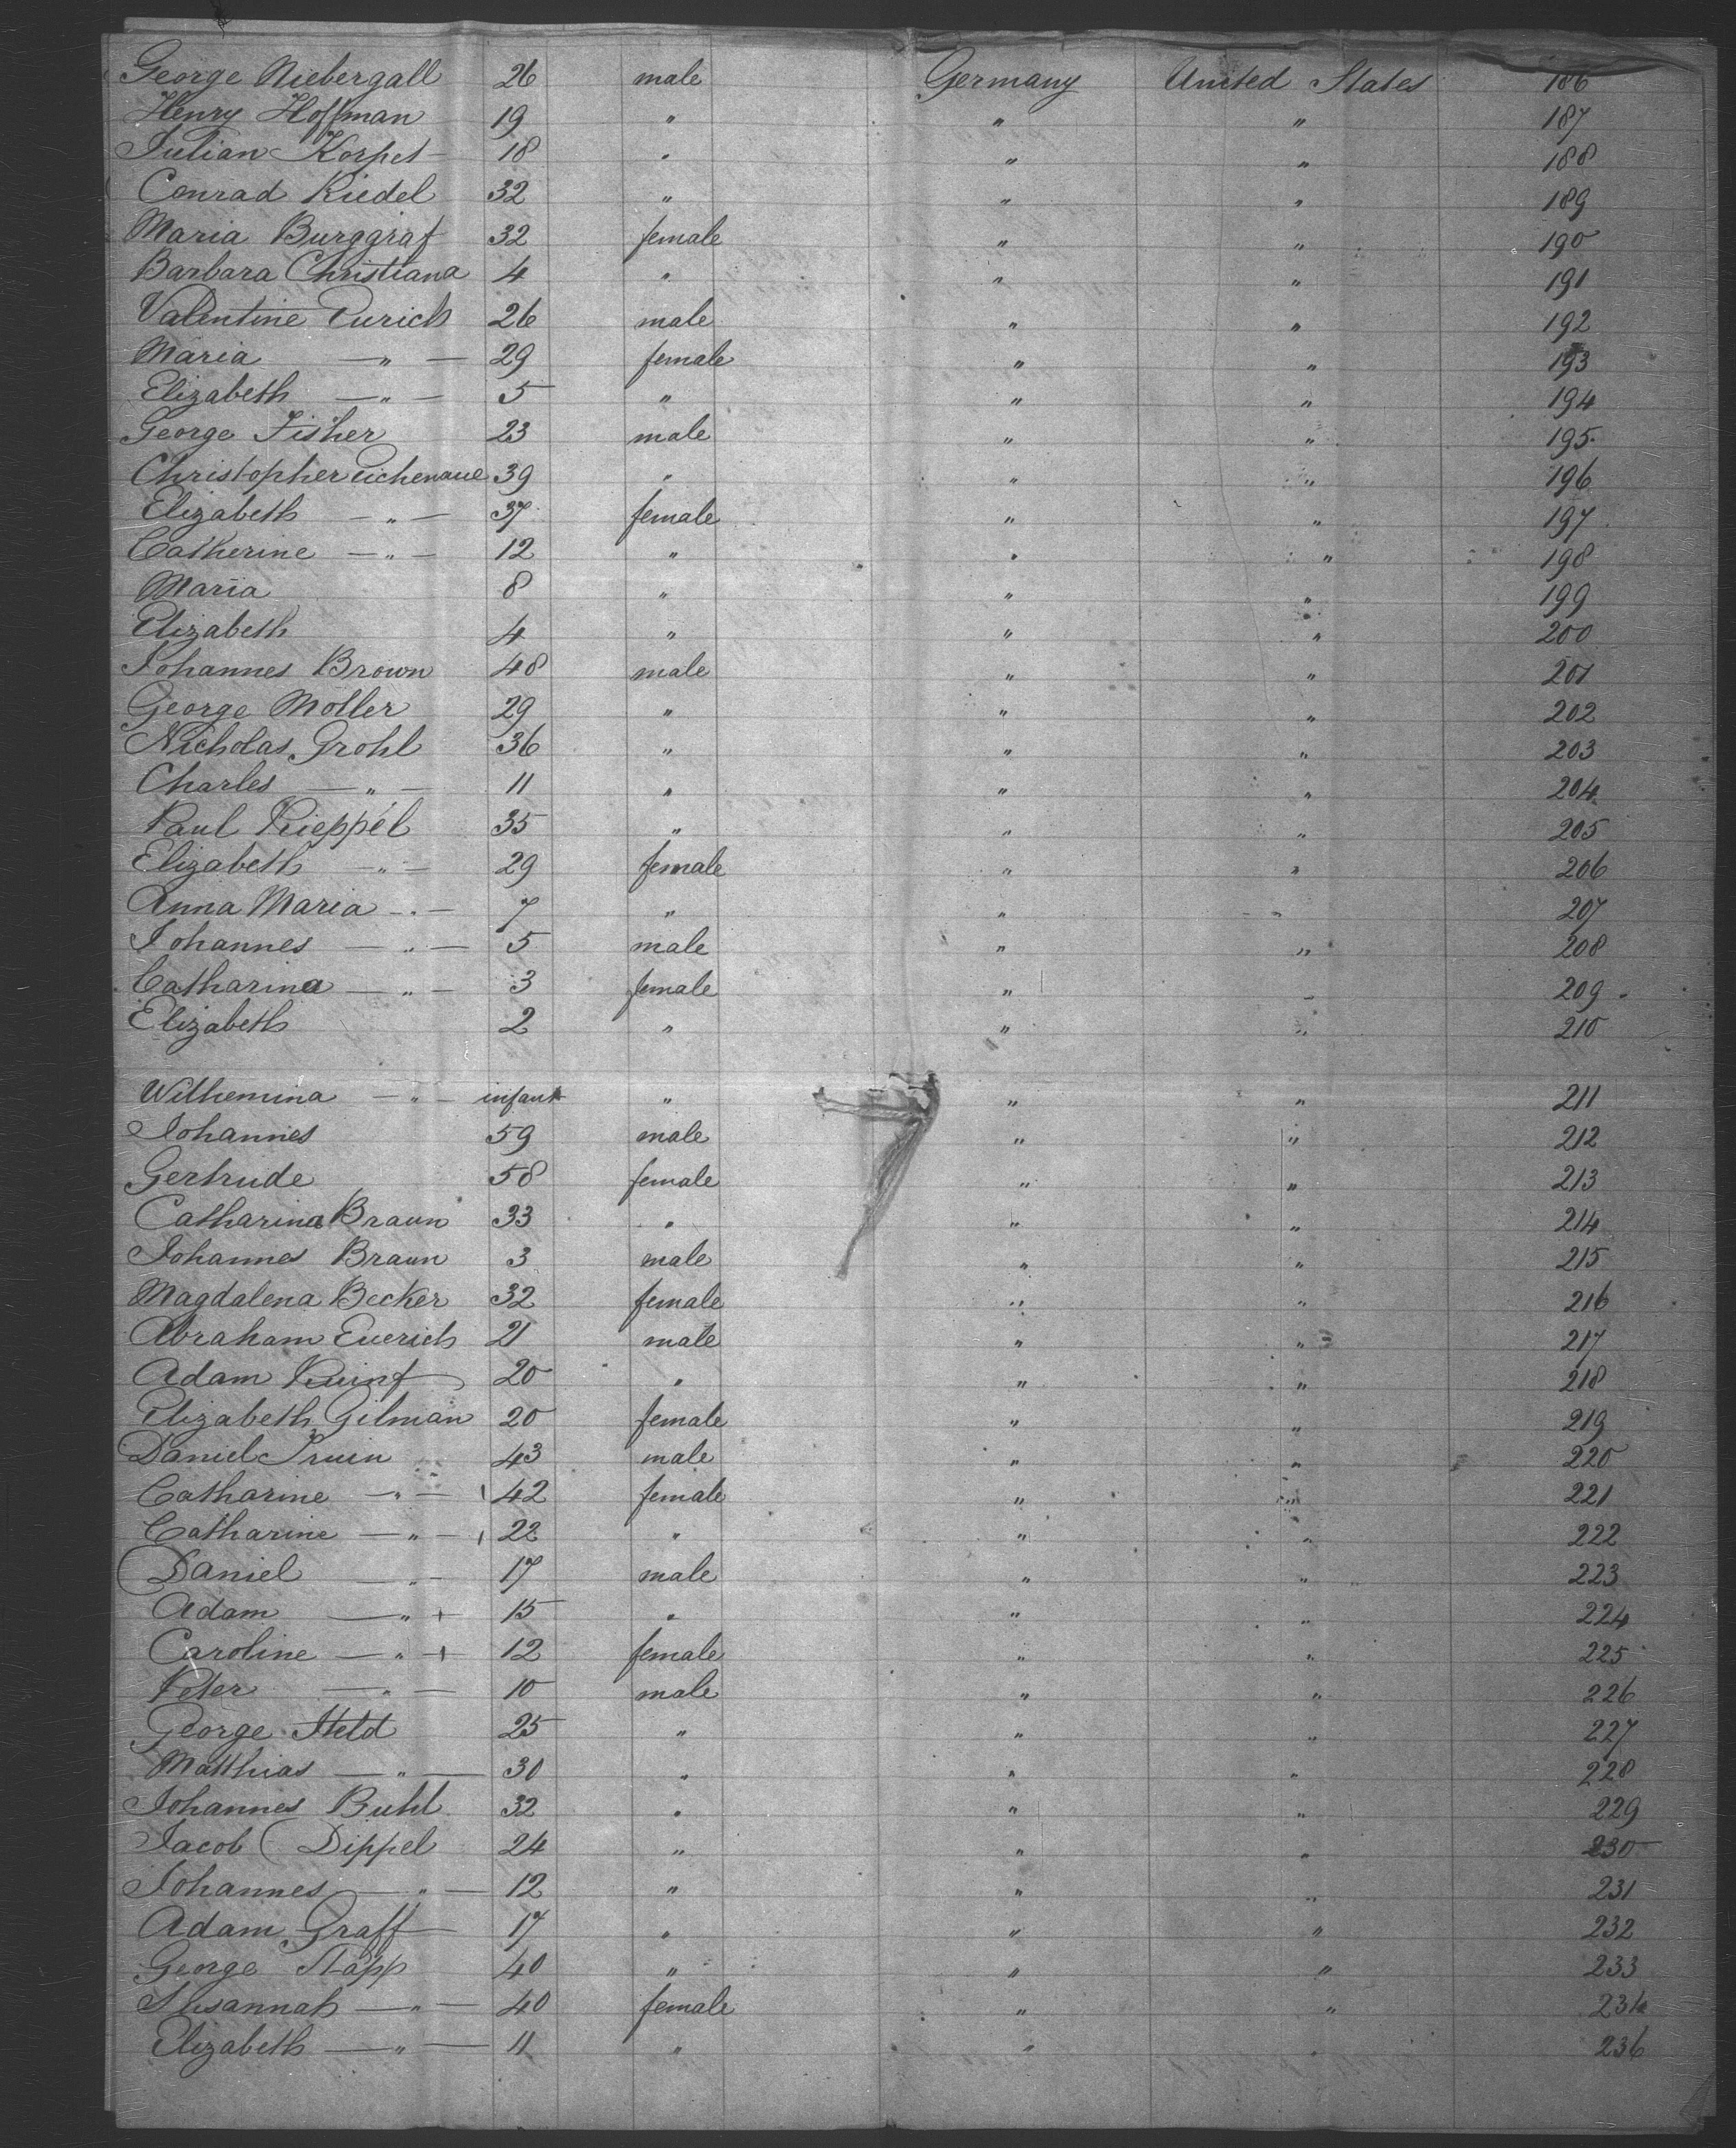 George Niebergall 26 male Germany United States 186
Henry Hoffman 19 " " " 187
Julian Korpet 18 " " " 188
Conrad Riedel 32 " " " 189
Maria Burggraf 32 female " " 190
Barbara Christiana 4 " " " 191
Valentine Eurich 26 male " " 192
Maria — " — 29 female " " 193
Elizabeth — " — 5 " " " 194
George Fisher 23 male " " 195
Christopher Eichenaue 39 " " " 196
Elizabeth — " — 37 female " " 197
Catherine — " — 12 " " " 198
Maria 8 " " " 199
Elizabeth 4 " " " 200
Johannes Brown 48 male " " 201
George Moller 29 " " " 202
Nicholas Grohl 36 " " " 203
Charles — " — 11 " " " 204
Paul Rieppel 35 " " " 205
Elizabeth — " — 29 female " " 206
Anna Maria — " — 7 " " " 207
Johannes — " — 5 male " " 208
Catharina — " — 3 female " " 209
Elizabeth 2 " " " 210
Wilhemina — " — infant " " " 211
Johannes 59 male " " 212
Gertrude 58 female " " 213
Catharina Braun 33 " " " 214
Johannes Braun 3 male " " 215
Magdalena Becker 32 female " " 216
Abraham Euerich 21 male " " 217
Adam 20 " " " 218
Elizabeth Gilman 20 female " " 219
Daniel 43 male " " 220
Catharine — " — 42 female " " 221
Catharine — " — 22 " " " 222
Daniel — " — 17 male " " 223
Adam — " — 15 " " " 224
Caroline — " — 12 female " " 225
Peter — " — 10 male " " 226
George Held 25 " " " 227
Matthias — " — 30 " " " 228
Johannes Buhl 32 " " " 229
Jacob Dippel 24 " " " 230
Johannes — " — 12 " " " 231
Adam Graff 17 " " " 232
George Stapp 40 " " " 233
Susannah — " — 40 female " " 234
Elizabeth — " — 11 " " " 236